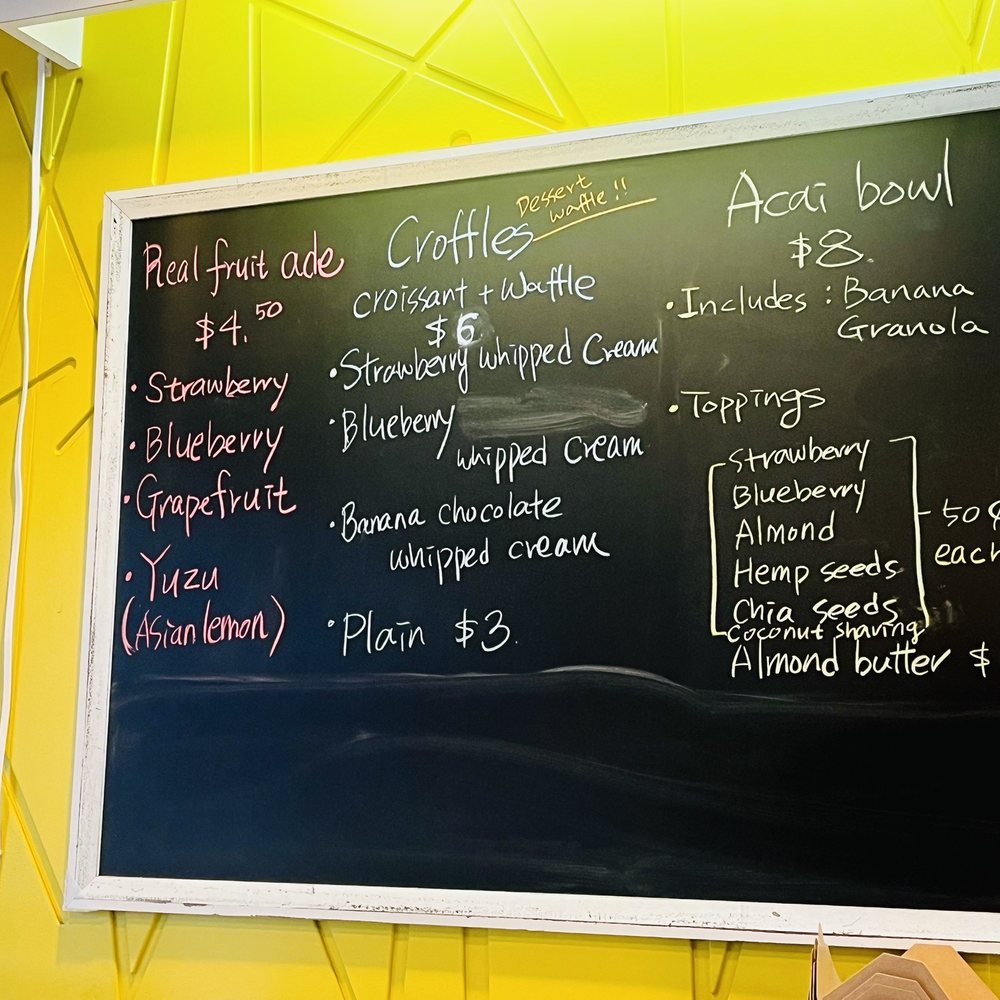 Real fruit ade
$4.50
• Strawberry
• Blueberry
• Grapefruit
• Yuzu
(Asian lemon)
Croffles
Dessert
waffle!!
croissant + Waffle
$6
• Strawberry whipped Cream
• Blueberry
whipped cream
• Banana chocolate
whipped cream
• Plain $3.
Acai bowl
$8.
• Includes : Banana
Granola
• Toppings
Strawberry
Blueberry
Almond
Hemp seeds
Chia seeds
Coconut shaving
50¢
each
Almond butter $